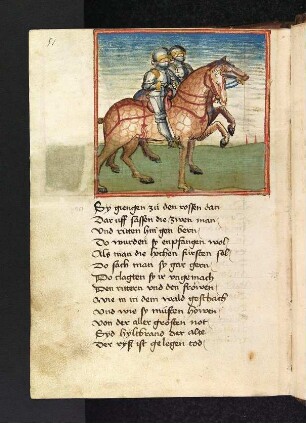 51
Sy giengen zů den rossen dan
Dar uff sassen die zwen man
Vnd ritten hin gen bern
Do wurden sy enpfangen wol
Als man die hochen fúrsten sol
Do sach man sy gar gern
Do clagten sy ir ungemach
Den rittern und den frôwen
Wie in in dem wald geschach
Vnd wie sy mŭsten hôwen
Von der aller grôsten not
Syd hyltbrand der alte
Der ryss ist gelegen tod